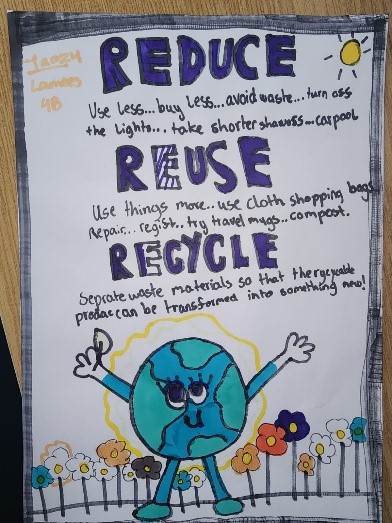 REDUCE
Use less...buy less...avoid waste...turn off
the lights... take shorter showers...carpool
REUSE
Use things more...use cloth shopping bags
Repair...regist..try travel mugs...compost.
RECYCLE
Seprate waste materials so that the recyable
produc can be transformed into something new!
4B